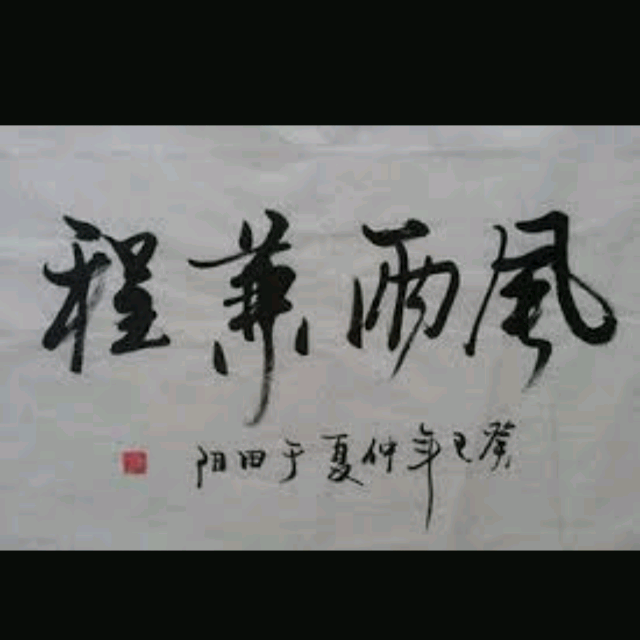 風雨兼程
癸巳年仲夏于田阳